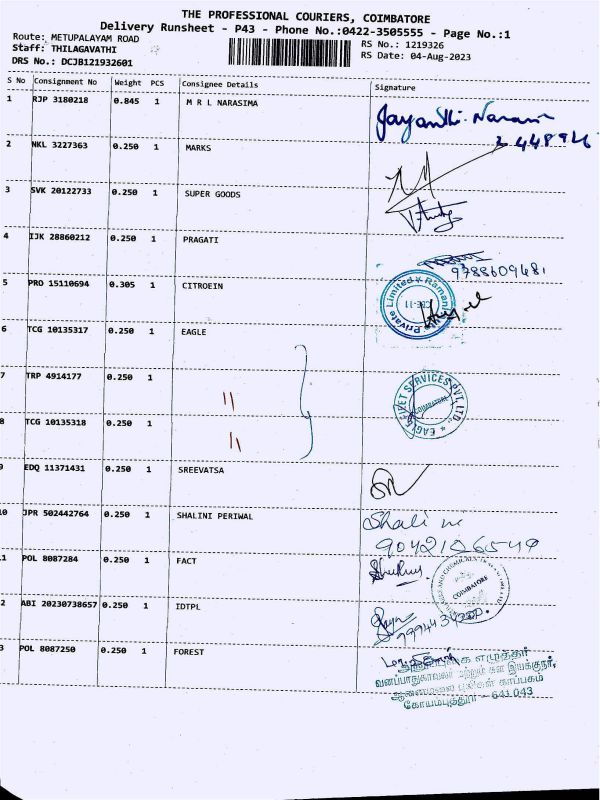 THE PROFESSIONAL COURIERS, COIMBATORE
Delivery Runsheet - P43 - Phone No.:0422-3505555 - Page No.:1
Route: METUPALAYAM ROAD RS No.: 1219326
Staff: THILAGAVATHI RS Date: 04-Aug-2023
DRS No.: DCJB121932601
S No Consignment No Weight PCS Consignee Details Signature
1 RJP 3180218 0.845 1 M R L NARASIMA
Jayanthi.
2 NKL 3227363 0.250 1 MARKS
3 SVK 20122733 0.250 1 SUPER GOODS
4 IJK 28860212 0.250 1 PRAGATI
9788609481
5 PRO 15110694 0.305 1 CITROEIN
Private Limited
CBE-11
6 TCG 10135317 0.250 1 EAGLE
7 TRP 4914177 0.250 1 "
EAGLE FLEET SERVICES PVT. LTD.
COIMBATORE
8 TCG 10135318 0.250 1 "
9 EDQ 11371431 0.250 1 SREEVATSA
10 JPR 502442764 0.250 1 SHALINI PERIWAL
Shalini
11 POL 8087284 0.250 1 FACT
COIMBATORE
2 ABI 20230738657 0.250 1 IDTPL
3 POL 8087250 0.250 1 FOREST
எழுத்தர்
வனப்பாதுகாவலர் மற்றும் கள இயக்குநர்,
ஆனைமலை புலிகள் காப்பகம்
கோயம்புத்தூர் - 641 043